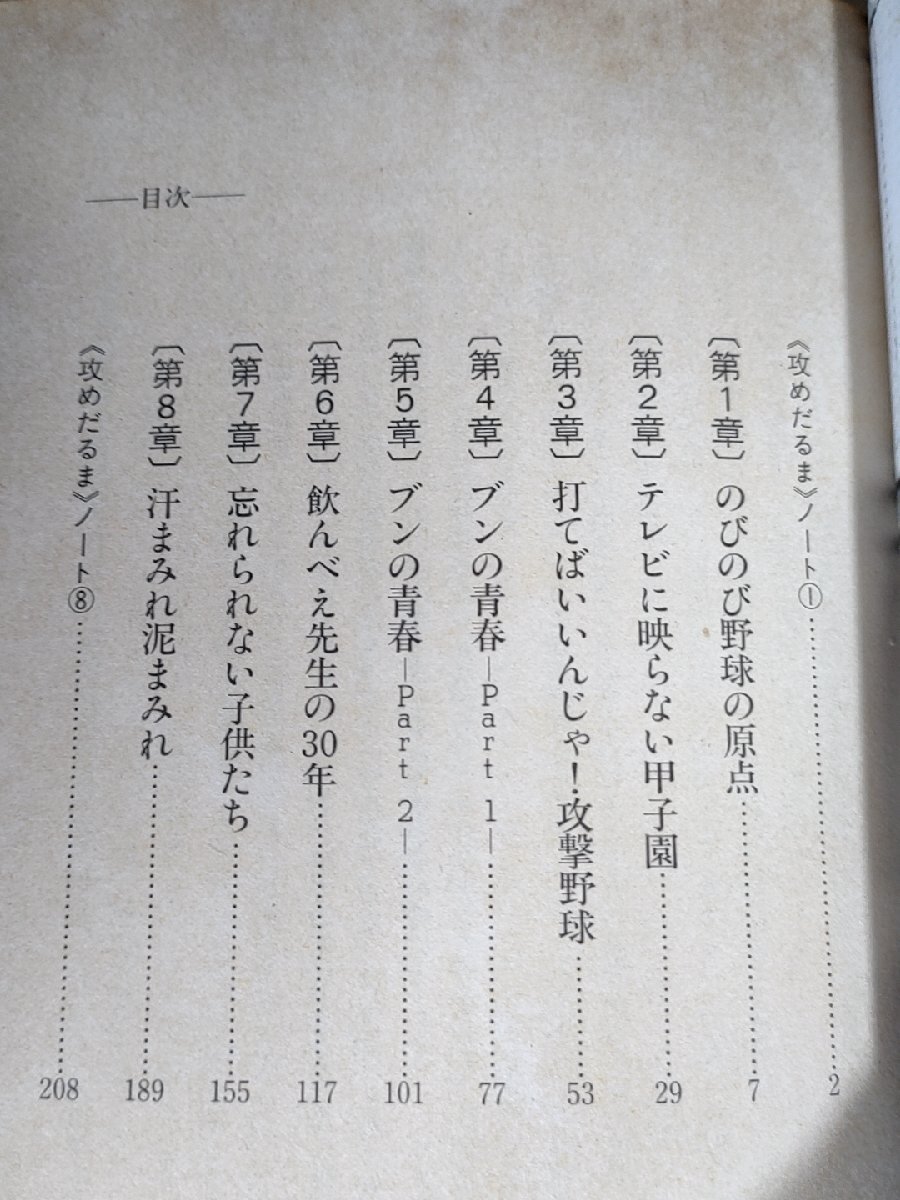 ——目次——
《攻めだるま》ノート①…………2
〔第1章〕のびのび野球の原点…………7
〔第2章〕テレビに映らない甲子園…………29
〔第3章〕打てばいいんじゃ！攻撃野球…………53
〔第4章〕ブンの青春—Part 1—…………77
〔第5章〕ブンの青春—Part 2—…………101
〔第6章〕飲んべぇ先生の30年…………117
〔第7章〕忘れられない子供たち…………155
〔第8章〕汗まみれ泥まみれ…………189
《攻めだるま》ノート⑧…………208